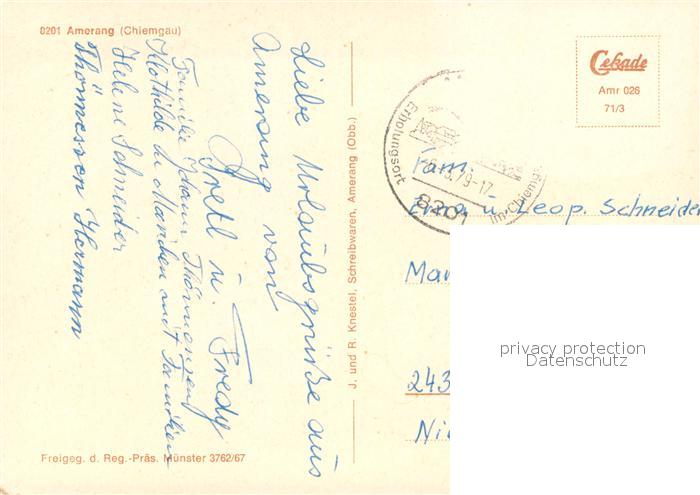 8201 Amerang (Chiemgau)
Liebe Urlaubsgrüße aus
Amerang von
Gretl u. Fredy
Familie Johann Thönnessen
Mathilde und
Helene Schneider
Thönnessen Hermann
Freigeg. d. Reg.-Präs. Münster 3762/67
J. und R. Knestel, Schreibwaren, Amerang (Obb.)
Cekade
Amr 026
71/3
Erholungsort
79-17
8201
im Chiemg
Fam.
u. Leop. Schneider
Mar
243
Ni
privacy protection
Datenschutz